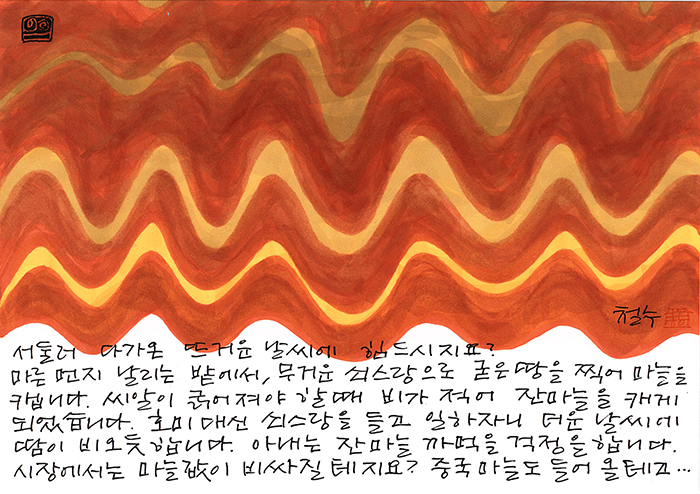 철수
서둘러 다가온 뜨거운 날씨에 힘드시지요?
마른 먼지 날리는 밭에서, 무거운 쇠스랑으로 굳은 땅을 찍어 마늘을
캐냅니다. 씨알이 굵어져야 할 때 비가 적어 잔마늘을 캐게
되었습니다. 호미 대신 쇠스랑을 들고 일하자니 더운 날씨에
땀이 비오듯 합니다. 아내는 잔마늘 까먹을 걱정을 합니다.
시장에서는 마늘값이 비싸질 테지요? 중국 마늘도 들어 올테고…